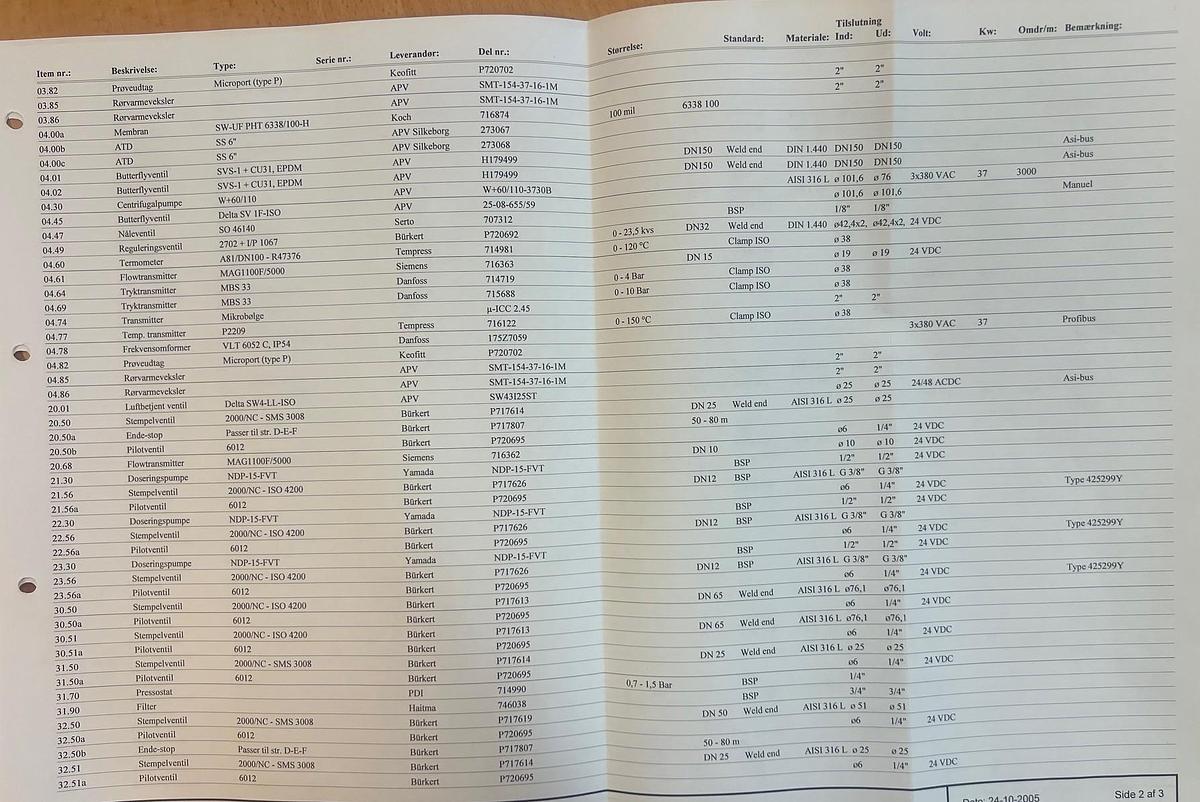 Tilslutning
Item nr.: Beskrivelse: Type: Serie nr.: Leverandør: Del nr.: Størrelse: Standard: Materiale: Ind: Ud: Volt: Kw: Omdr/m: Bemærkning:
03.82 Prøveudtag Microport (type P) Keofitt P720702
03.85 Rørvarmeveksler APV SMT-154-37-16-1M 2" 2"
03.86 Rørvarmeveksler APV SMT-154-37-16-1M 2" 2"
04.00a Membran SW-UF PHT 6338/100-H Koch 716874 100 mil 6338 100
04.00b ATD SS 6" APV Silkeborg 273067
04.00c ATD SS 6" APV Silkeborg 273068
04.01 Butterflyventil SVS-1 + CU31, EPDM APV H179499 DN150 Weld end DIN 1.440 DN150 DN150 Asi-bus
04.02 Butterflyventil SVS-1 + CU31, EPDM APV H179499 DN150 Weld end DIN 1.440 DN150 DN150 Asi-bus
04.30 Centrifugalpumpe W+60/110 APV W+60/110-3730B AISI 316 L ø 101,6 ø 76 3x380 VAC 37 3000
04.45 Butterflyventil Delta SV 1F-ISO APV 25-08-655/59 ø 101,6 ø 101,6 Manuel
04.47 Nåleventil SO 46140 Serto 707312 BSP 1/8" 1/8"
04.49 Reguleringsventil 2702 + I/P 1067 Bürkert P720692 0 - 23,5 kvs DN32 Weld end DIN 1.440 ø42,4x2, ø42,4x2, 24 VDC
04.60 Termometer A81/DN100 - R47376 Tempress 714981 0 - 120 ºC Clamp ISO ø 38
04.61 Flowtransmitter MAG1100F/5000 Siemens 716363 DN 15 ø 19 ø 19 24 VDC
04.64 Tryktransmitter MBS 33 Danfoss 714719 0 - 4 Bar Clamp ISO ø 38
04.69 Tryktransmitter MBS 33 Danfoss 715688 0 - 10 Bar Clamp ISO ø 38
04.74 Transmitter Mikrobølge µ-ICC 2.45 2" 2"
04.77 Temp. transmitter P2209 Tempress 716122 0 - 150 ºC Clamp ISO ø 38
04.78 Frekvensomformer VLT 6052 C, IP54 Danfoss 175Z7059 3x380 VAC 37 Profibus
04.82 Prøveudtag Microport (type P) Keofitt P720702
04.85 Rørvarmeveksler APV SMT-154-37-16-1M 2" 2"
04.86 Rørvarmeveksler APV SMT-154-37-16-1M 2" 2"
20.01 Luftbetjent ventil Delta SW4-LL-ISO APV SW43I25ST ø 25 ø 25 24/48 ACDC Asi-bus
20.50 Stempelventil 2000/NC - SMS 3008 Bürkert P717614 DN 25 Weld end AISI 316 L ø 25 ø 25
20.50a Ende-stop Passer til str. D-E-F Bürkert P717807 50 - 80 m
20.50b Pilotventil 6012 Bürkert P720695 ø6 1/4" 24 VDC
20.68 Flowtransmitter MAG1100F/5000 Siemens 716362 DN 10 ø 10 ø 10 24 VDC
21.30 Doseringspumpe NDP-15-FVT Yamada NDP-15-FVT BSP 1/2" 1/2" 24 VDC
21.56 Stempelventil 2000/NC - ISO 4200 Bürkert P717626 DN12 BSP AISI 316 L G 3/8" G 3/8"
21.56a Pilotventil 6012 Bürkert P720695 ø6 1/4" 24 VDC Type 425299Y
22.30 Doseringspumpe NDP-15-FVT Yamada NDP-15-FVT BSP 1/2" 1/2" 24 VDC
22.56 Stempelventil 2000/NC - ISO 4200 Bürkert P717626 DN12 BSP AISI 316 L G 3/8" G 3/8"
22.56a Pilotventil 6012 Bürkert P720695 ø6 1/4" 24 VDC Type 425299Y
23.30 Doseringspumpe NDP-15-FVT Yamada NDP-15-FVT BSP 1/2" 1/2" 24 VDC
23.56 Stempelventil 2000/NC - ISO 4200 Bürkert P717626 DN12 BSP AISI 316 L G 3/8" G 3/8"
23.56a Pilotventil 6012 Bürkert P720695 ø6 1/4" 24 VDC Type 425299Y
30.50 Stempelventil 2000/NC - ISO 4200 Bürkert P717613 DN 65 Weld end AISI 316 L ø76,1 ø76,1
30.50a Pilotventil 6012 Bürkert P720695 ø6 1/4" 24 VDC
30.51 Stempelventil 2000/NC - ISO 4200 Bürkert P717613 DN 65 Weld end AISI 316 L ø76,1 ø76,1
30.51a Pilotventil 6012 Bürkert P720695 ø6 1/4" 24 VDC
31.50 Stempelventil 2000/NC - SMS 3008 Bürkert P717614 DN 25 Weld end AISI 316 L ø 25 ø 25
31.50a Pilotventil 6012 Bürkert P720695 ø6 1/4" 24 VDC
31.70 Pressostat PDI 714990 0,7 - 1,5 Bar BSP 1/4"
31.90 Filter Haitma 746038 BSP 3/4" 3/4"
32.50 Stempelventil 2000/NC - SMS 3008 Bürkert P717619 DN 50 Weld end AISI 316 L ø 51 ø 51
32.50a Pilotventil 6012 Bürkert P720695 ø6 1/4" 24 VDC
32.50b Ende-stop Passer til str. D-E-F Bürkert P717807 50 - 80 m
32.51 Stempelventil 2000/NC - SMS 3008 Bürkert P717614 DN 25 Weld end AISI 316 L ø 25 ø 25
32.51a Pilotventil 6012 Bürkert P720695 ø6 1/4" 24 VDC
Dato: 24-10-2005 Side 2 af 3